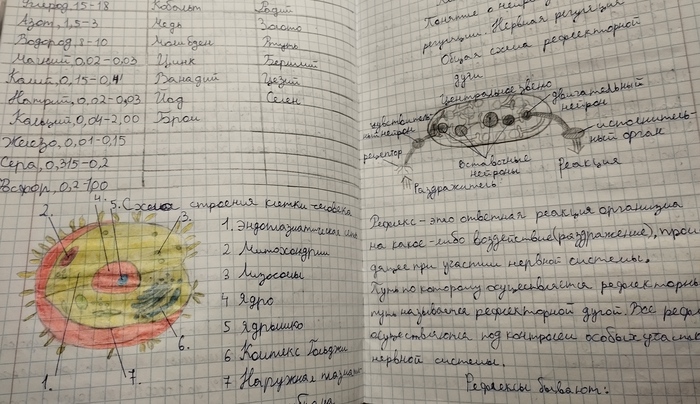 Углерод, 15-18 Кобальт Радий
Азот, 1,5-3 Медь Золото
Водород, 8-10 Молибден Ртуть
Магний 0,02-0,03 Цинк Бериллий
Калий, 0,15-0,4 Ванадий Цезий
Натрий, 0,02-0,03 Йод Селен
Кальций, 0,04-2,00 Бром
Железо, 0,01-0,15
Сера, 0,315-0,2
Фосфор, 0,2-1,00
5. Схема строения клетки человека
4.
2.
3.
6.
1.
7.
1. Эндоплазматическая
2 Митохондрии
3 Лизосомы
4 Ядро
5 Ядрышко
6 Комплекс Гольджи
7 Наружная
Понятие о
регуляции. Нервная регуляция
Общая схема рефлекторной
дуги
Центральное звено
чувствитель-
ный нейрон
двигательный
нейрон
рецептор
исполнитель-
ный орган
Вставочные
нейроны
Реакция
Раздражитель
Рефлекс - это ответная реакция организма
на какое-либо воздействие (раздражение), прои
дящее при участии нервной системы.
Путь по которому осуществляется рефлекторны
путь называется рефлекторной дугой. Все рефле
осуществляются под контролем особых участк
нервной системы.
Рефлексы бывают: